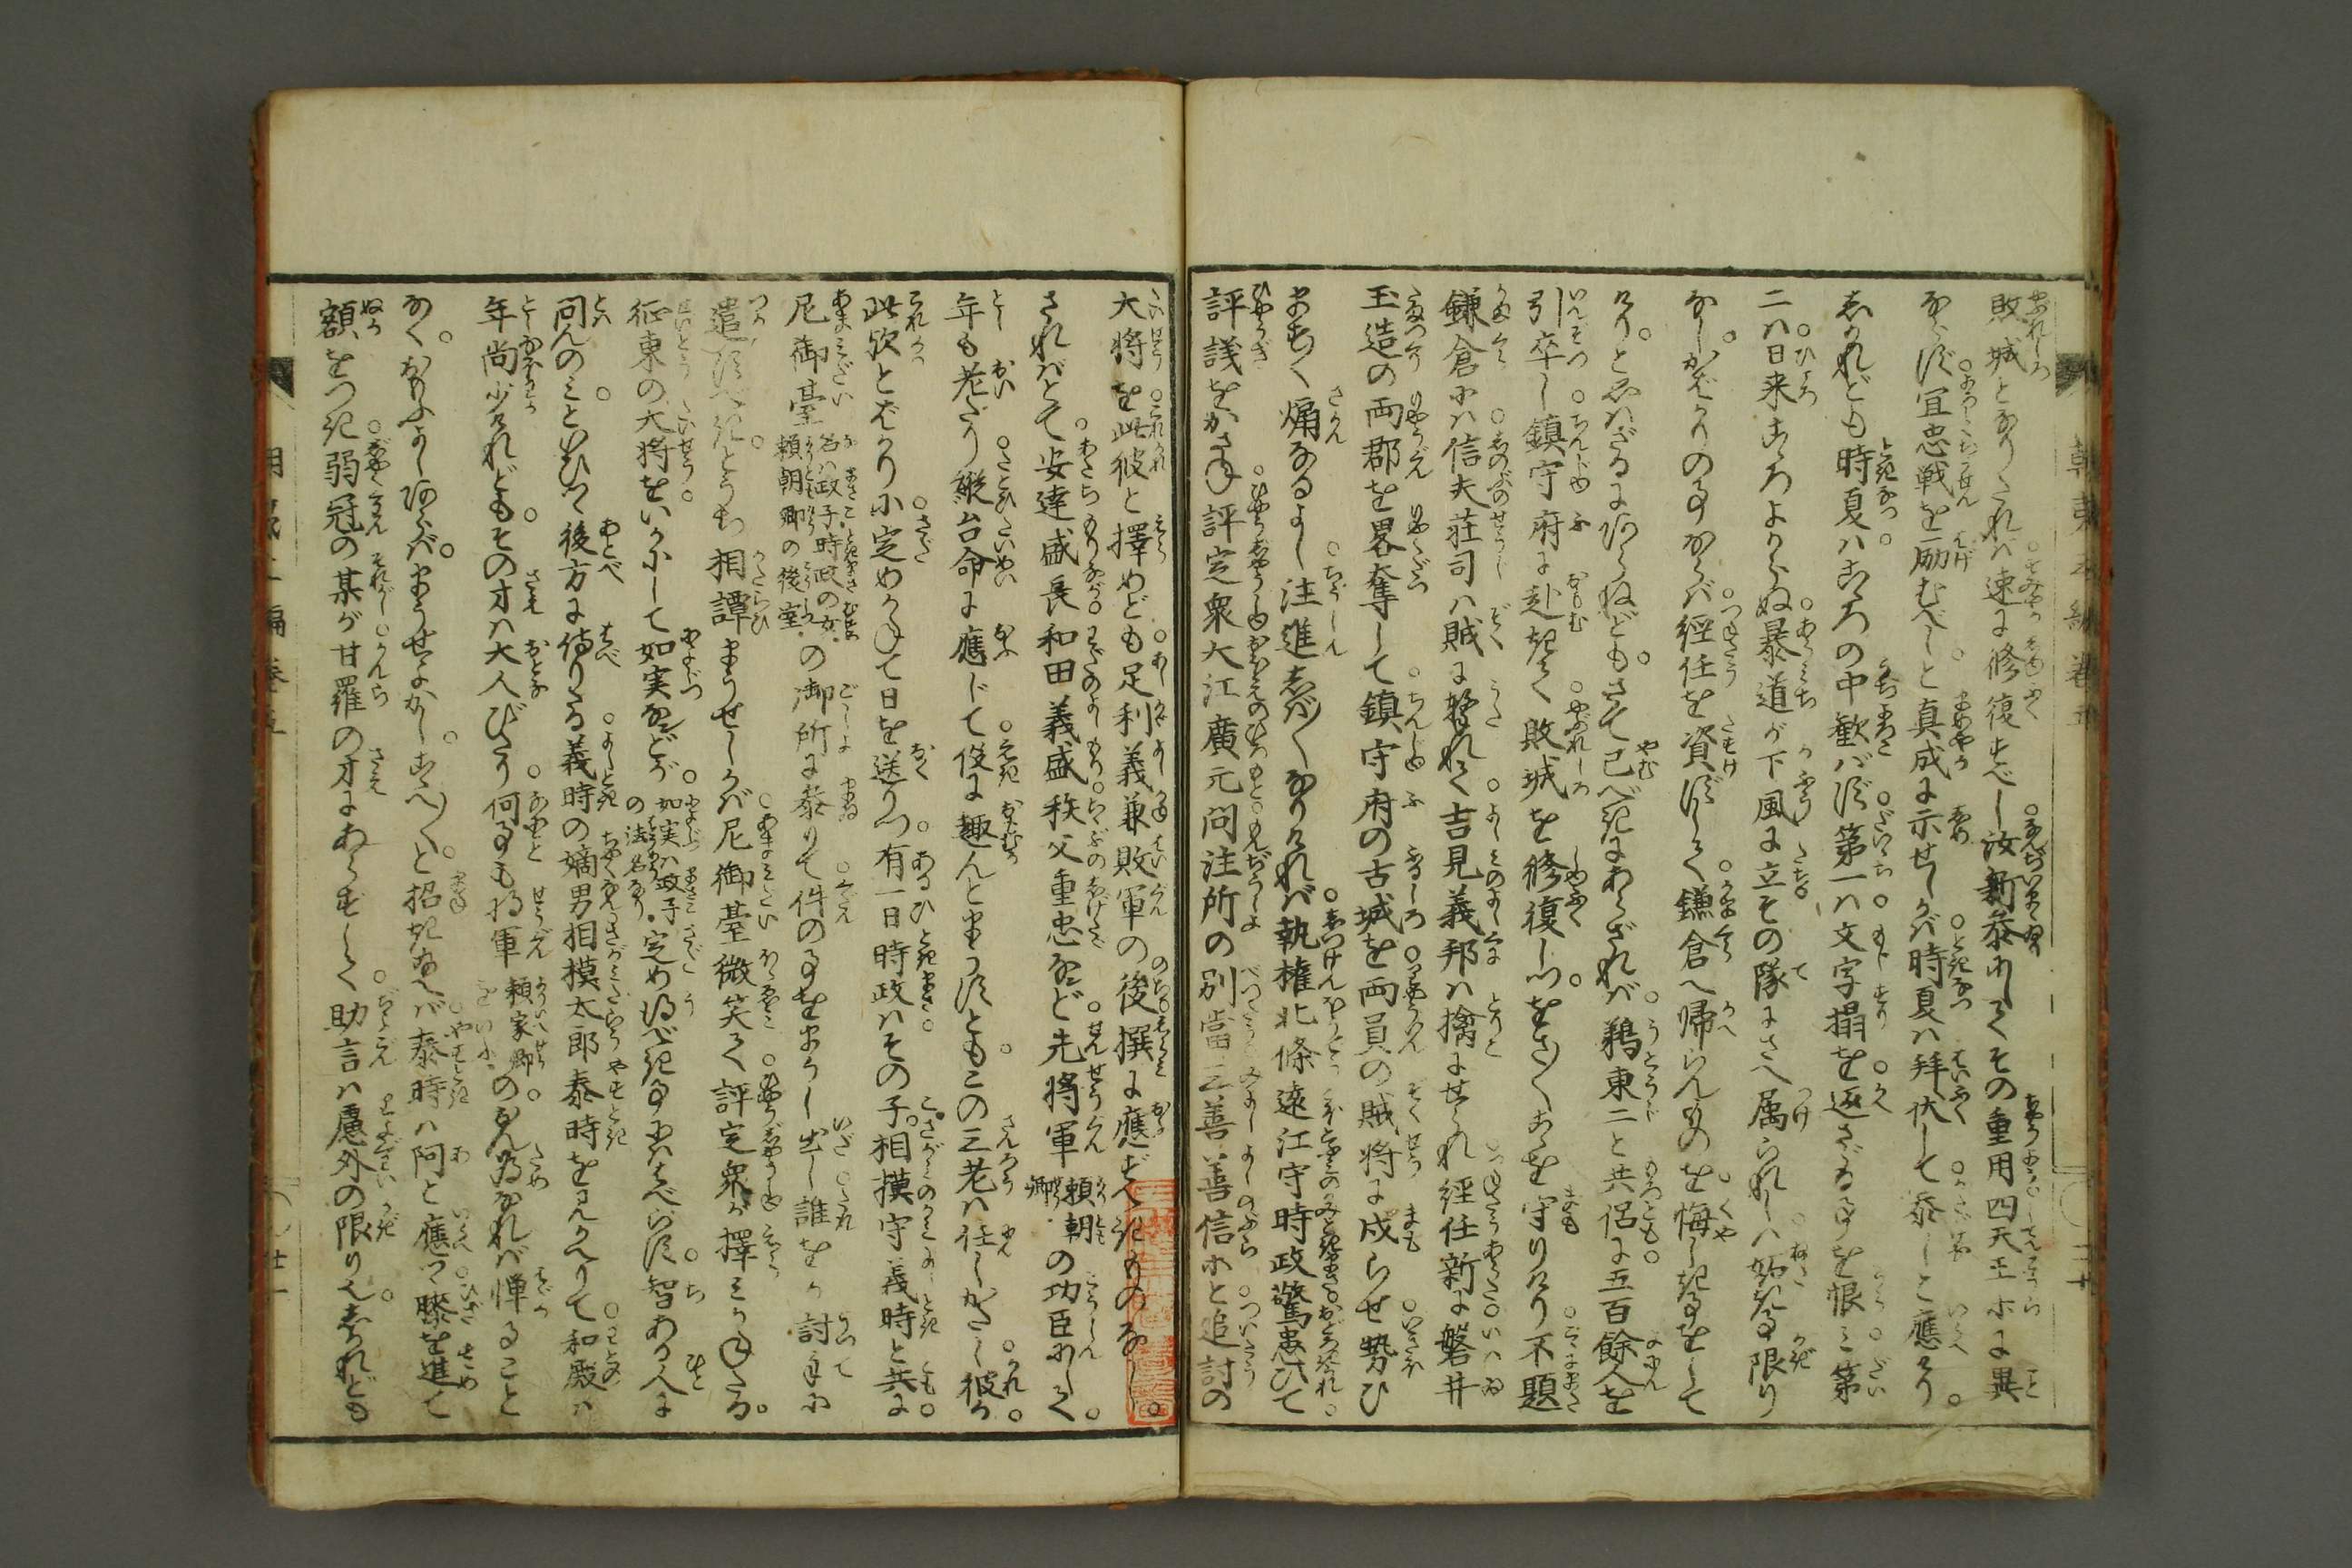 敗城となりたれバ速に修復すべし汝新参にしてその重用四天王ホに異
ならず宜忠戦を励むべしと真成に示せしかバ時夏ハ拝伏して承りぬと應けり
されども時夏ハこゝろの中歓バず第一ハ文字摺を返さゞる事を恨ミ第
二ハ日来こゝろよからぬ暴道が下風に立その隊にさへ属られしハ妬き事限り
なし かゝりの事ならバ經任を資ずして鎌倉へ帰らんものを悔しき事をして
けり と思ハざるにあらねども さて已べきにあらざれバ 鵜東二と共侶に五百餘人を
引卒し鎮守府に赴きて敗城を修復しつ をさ〳〵こゝを守りけり 不題
鎌倉にハ信夫荘司ハ賊に撃れて吉見義邦ハ擒にせられ 經任新に磐井
玉造の両郡を畧奪して鎮守府の古城を両員の賊将に戍らせ勢ひ
ますます熾なるよし注進しば〳〵なりけれバ執権北條遠江守時政驚き患ひて
評議をかさね評定衆大江廣元問注所の別當三善善信ホと追討の
大将を此彼と擇めども足利義兼敗軍の後撰に應ずべきものなし
さればとて安達盛長和田義盛秩父重忠など先将軍 頼朝卿 の功臣にして
年も老たり縦台命に應じて倶に趣んとまうすとも この三老ハ任しがたし 彼か
此歟とばかりに定めかねて日を送りつ有一日時政ハその子相摸守義時と共に
尼御臺 名ハ政子時政の女頼朝卿の後室 の御所に参りて件の事をまうし出し誰をか討手に
遣すべきとうち相譚まうせしかバ尼御臺微笑て評定衆が擇ミかねたる
征東の大将をいかにして如実などが 如実ハ政子の法名なり 定め得べき事にハはべらず 智ある人に
問んのミといひつゝ後方に侍りたる義時の嫡男相摸太郎泰時を見かへりて和殿ハ
年尚少けれどもその才ハ大人びたり何事も将軍 頼家卿をいふ のおん為なれバ憚ること
なく おもふよしあらバ まうせよかし こゝへ〳〵と招き給へバ 泰時ハ阿と應つゝ膝を進て
額をつき弱冠の某が甘羅の才にあらずして助言ハ慮外の限りに候 しかれども